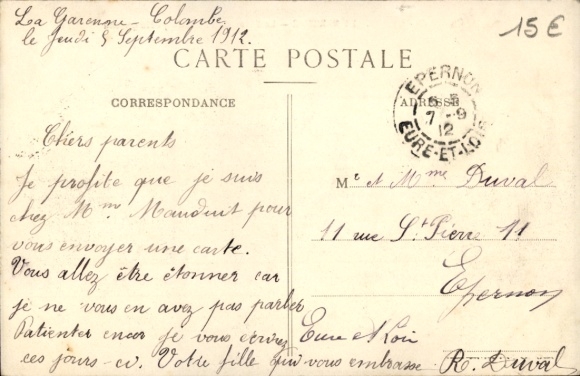 La Garenne-Colombe
le Jeudi 5 Septembre 1912.
15€
CARTE POSTALE
CORRESPONDANCE
ADRESSE
EPERNON
7-9
12
EURE-ET-LOIR
Chers parents
Je profite que je suis
chez Mme Mauduit pour
vous envoyer une carte.
Vous allez être étonner car
je ne vous en avez pas parler
Patienter encor je vous écrirez
ces jours-ci. Votre fille qui vous embrasse. R. Duval
Mr et Mme Duval
11 rue St Pierre 11
Epernon
Eure et Loir